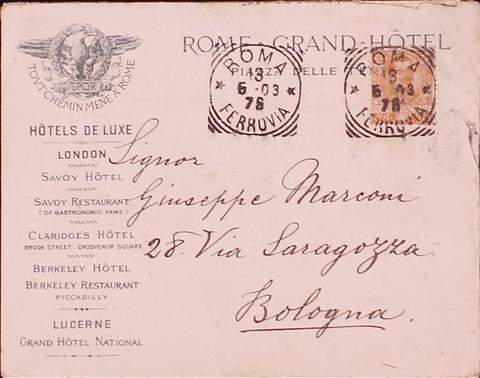 ROME - GRAND-HÔTEL
PIAZZA DELLE
SPQR
TOUT CHEMIN MÈNE A ROME
ROMA
13
6 -03
7S
FERROVIA
ROMA
13
6 -03
7S
FERROVIA
HÔTELS DE LUXE
LONDON
SAVOY HÔTEL
SAVOY RESTAURANT
(OF GASTRONOMIC FAME)
CLARIDGE'S HÔTEL
BROOK STREET GROSVENOR SQUARE
BERKELEY HÔTEL
BERKELEY RESTAURANT
PICCADILLY
LUCERNE
GRAND HÔTEL NATIONAL
Signor
Giuseppe Marconi
28. Via Saragozza
Bologna.